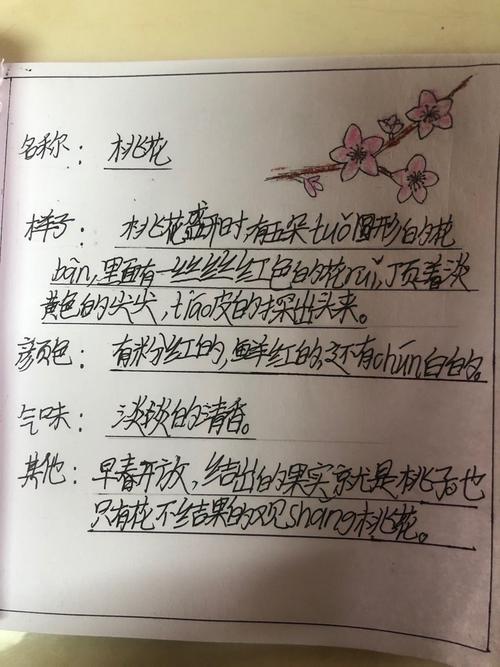 名称： 桃花
样子： 桃花盛开时，有五朵tuǒ圆形的花
bàn，里面有一丝丝红色的花ruǐ，顶着淡
黄色的尖尖，tiáo皮的探出头来。
颜色： 有粉红的，鲜红的，还有chún白的。
气味： 淡淡的清香。
其他： 早春开放，结出的果实就是桃子。也
只有花不结果的观shǎng桃花。